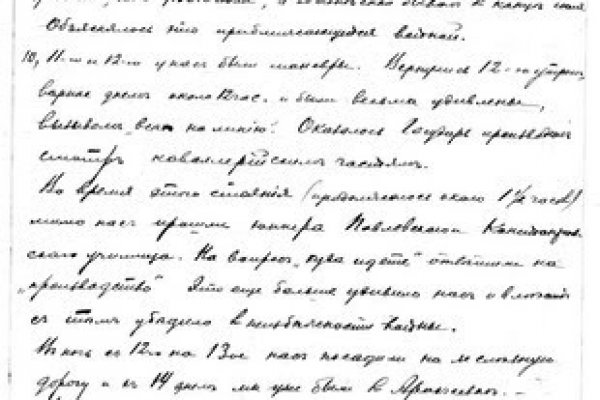 Объяснялось это приближающейся войной.
10, 11-го и 12-го у нас были маневры. Вернулись 12-го утром,
вернее днем около 12 час. и были весьма удивлены,
вызовом "всех на линию". Оказалось Государь производит
смотр кавалерийским частям.
Во время этого стояния (продолжалось около 1½ часов)
мимо нас прошли юнкера Павловского
ского училища. На вопрос "куда идете" ответили на
"производство" Это еще больше удивило нас и
с этим убедило в неизбежности войны.
В ночь с 12го на 13ое нас посадили на железную
дорогу и 14 днем мы уже были в